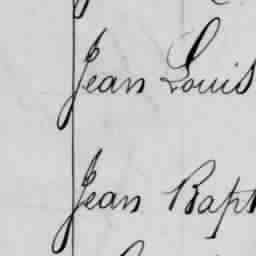 Jean Louis
Jean Bapt